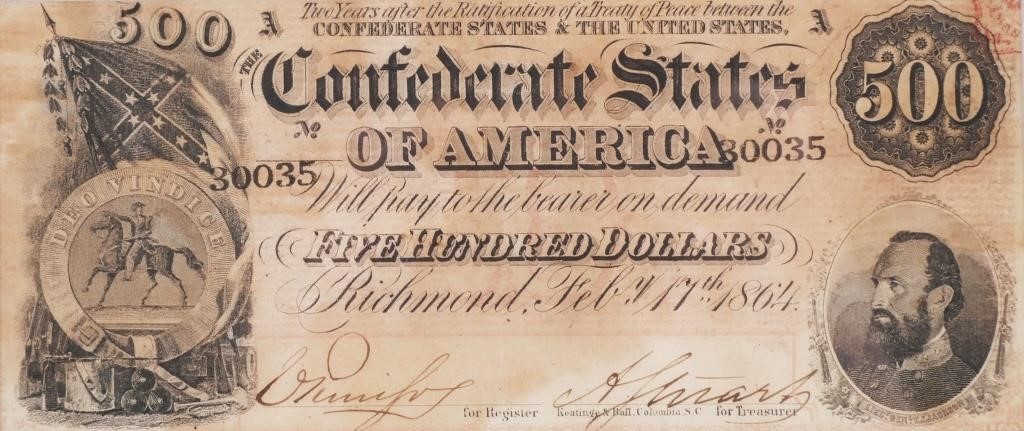 500 A Two Years after the Ratification of a Treaty of Peace between the A
CONFEDERATE STATES & THE UNITED STATES,
THE Confederate States 500
No OF AMERICA No
30035 30035
Will pay to the bearer on demand
DEO VINDICE
FIVE HUNDRED DOLLARS
Richmond, Feby 17th 1864.
for Register Keatinge & Ball, Columbia, S.C for Treasurer